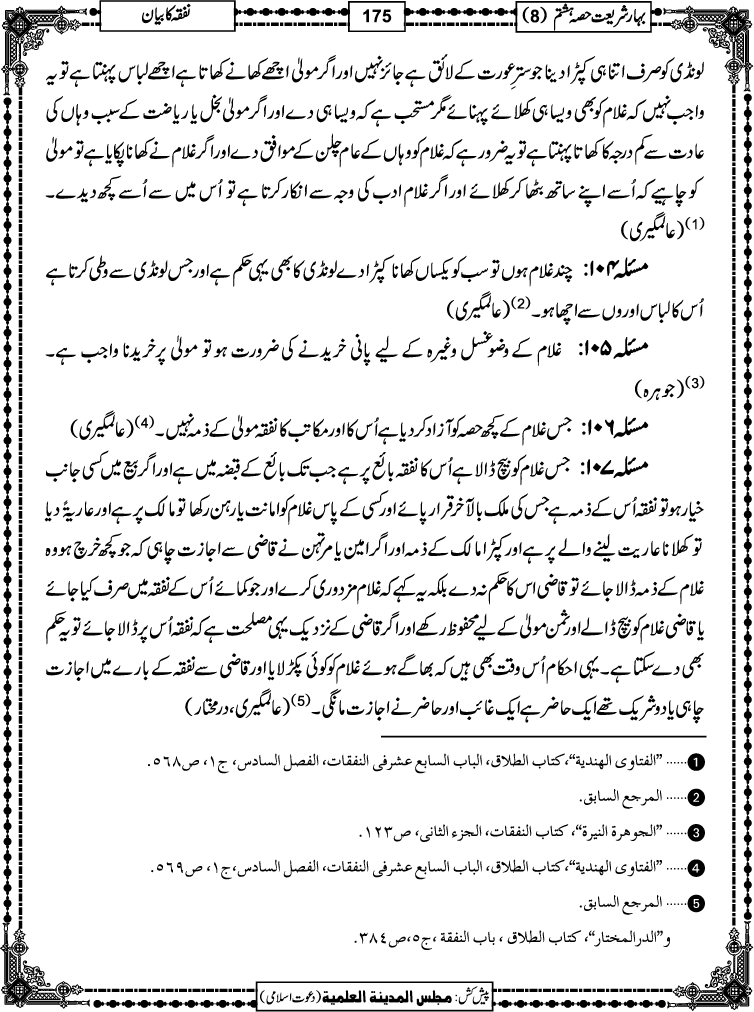 بہارِ شریعت حصہ ہشتم (8)
175
نفقہ کا بیان
لونڈی کو صرف اتنا ہی کپڑا دینا جو سترِ عورت کے لائق ہے جائز نہیں اور اگر مولیٰ اچھے کھانے کھاتا ہے اچھے لباس پہنتا ہے تو یہ
واجب نہیں کہ غلام کو بھی ویسا ہی کھلائے پہنائے مگر مستحب ہے کہ ویسا ہی دے اور اگر مولیٰ بخل یا ریاضت کے سبب وہاں کی
عادت سے کم درجہ کا کھاتا پہنتا ہے تو یہ ضرور ہے کہ غلام کو وہاں کے عام چلن کے موافق دے اور اگر غلام نے کھانا پکایا ہے تو مولیٰ
کو چاہیے کہ اُسے اپنے ساتھ بٹھا کر کھلائے اور اگر غلام ادب کی وجہ سے انکار کرتا ہے تو اُس میں سے اُسے کچھ دیدے۔
(1) (عالمگیری)
مسئلہ ۱۰۴: چند غلام ہوں تو سب کو یکساں کھانا کپڑا دے لونڈی کا بھی یہی حکم ہے اور جس لونڈی سے وطی کرتا ہے
اُس کا لباس اوروں سے اچھا ہو۔ (2) (عالمگیری)
مسئلہ ۱۰۵: غلام کے وضو غسل وغیرہ کے لیے پانی خریدنے کی ضرورت ہو تو مولیٰ پر خریدنا واجب ہے۔
(3) (جوہرہ)
مسئلہ ۱۰۶: جس غلام کے کچھ حصہ کو آزاد کر دیا ہے اُس کا اور مکاتب کا نفقہ مولیٰ کے ذمہ نہیں۔ (4) (عالمگیری)
مسئلہ ۱۰۷: جس غلام کو بیچ ڈالا ہے اُس کا نفقہ بائع پر ہے جب تک بائع کے قبضہ میں ہے اور اگر بیع میں کسی جانب
خیار ہو تو نفقہ اُس کے ذمہ ہے جس کی ملک بالآخر قرار پائے اور کسی کے پاس غلام کو امانت یا رہن رکھا تو مالک پر ہے اور عاریۃً دیا
تو کھلانا عاریت لینے والے پر ہے اور کپڑا مالک کے ذمہ اور اگر امین یا مرتہن نے قاضی سے اجازت چاہی کہ جو کچھ خرچ ہو وہ
غلام کے ذمہ ڈالا جائے تو قاضی اس کا حکم نہ دے بلکہ یہ کہے کہ غلام مزدوری کرے اور جو کمائے اُس کے نفقہ میں صرف کیا جائے
یا قاضی غلام کو بیچ ڈالے اور ثمن مولیٰ کے لیے محفوظ رکھے اور اگر قاضی کے نزدیک یہی مصلحت ہے کہ نفقہ اُس پر ڈالا جائے تو یہ حکم
بھی دے سکتا ہے۔ یہی احکام اُس وقت بھی ہیں کہ بھاگے ہوئے غلام کو کوئی پکڑ لایا اور قاضی سے نفقہ کے بارے میں اجازت
چاہی یا دو شریک تھے ایک حاضر ہے ایک غائب اور حاضر نے اجازت مانگی۔ (5) (عالمگیری، درمختار)
1 ...... ”الفتاوی الهندية“،كتاب الطلاق، الباب السابع عشرفی النفقات، الفصل السادس، ج۱، ص۵٦۸.
2 ...... المرجع السابق.
3 ...... ”الجوهرة النيرة“، كتاب النفقات، الجزء الثانی، ص۱۲۳.
4 ...... ”الفتاوی الهندية“،كتاب الطلاق، الباب السابع عشرفی النفقات، الفصل السادس،ج۱، ص۵٦۹.
5 ...... المرجع السابق.
و”الدرالمختار“، كتاب الطلاق ، باب النفقة ،ج۵،ص۳۸٤.
پیش کش: مجلس المدينة العلمية (دعوت اسلامی)